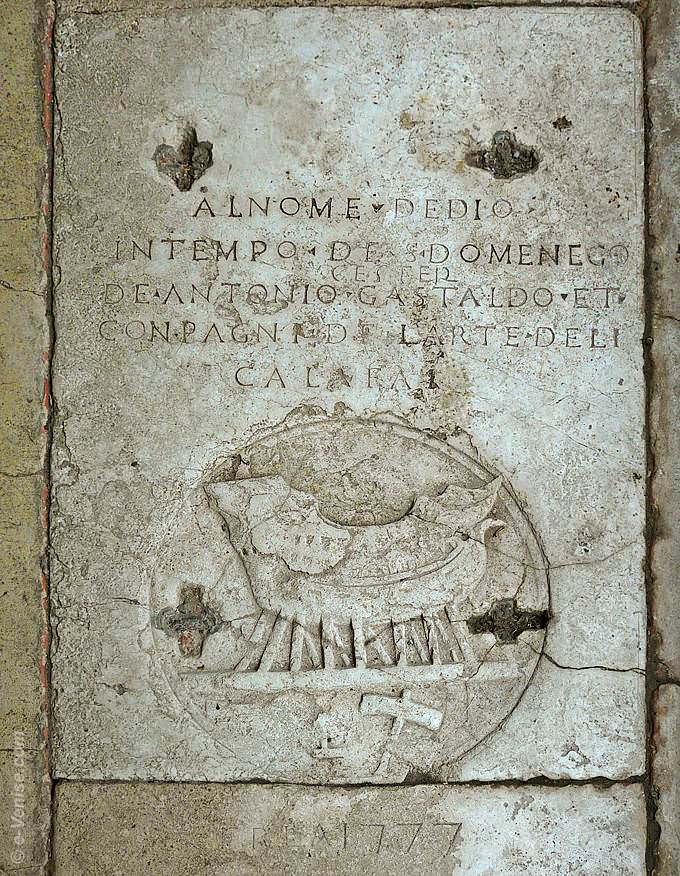 ALNOME ▾ DEDIO
INTEMPO ▾ DE ▾ S DOMENEGO
CESTER
DE ▾ ANTONIO ▾ GASTALDO ▾ ET
CON ▾ PAGNI DE LARTE ▾ DELI
CALAFAI
1777
© e-Venise.com